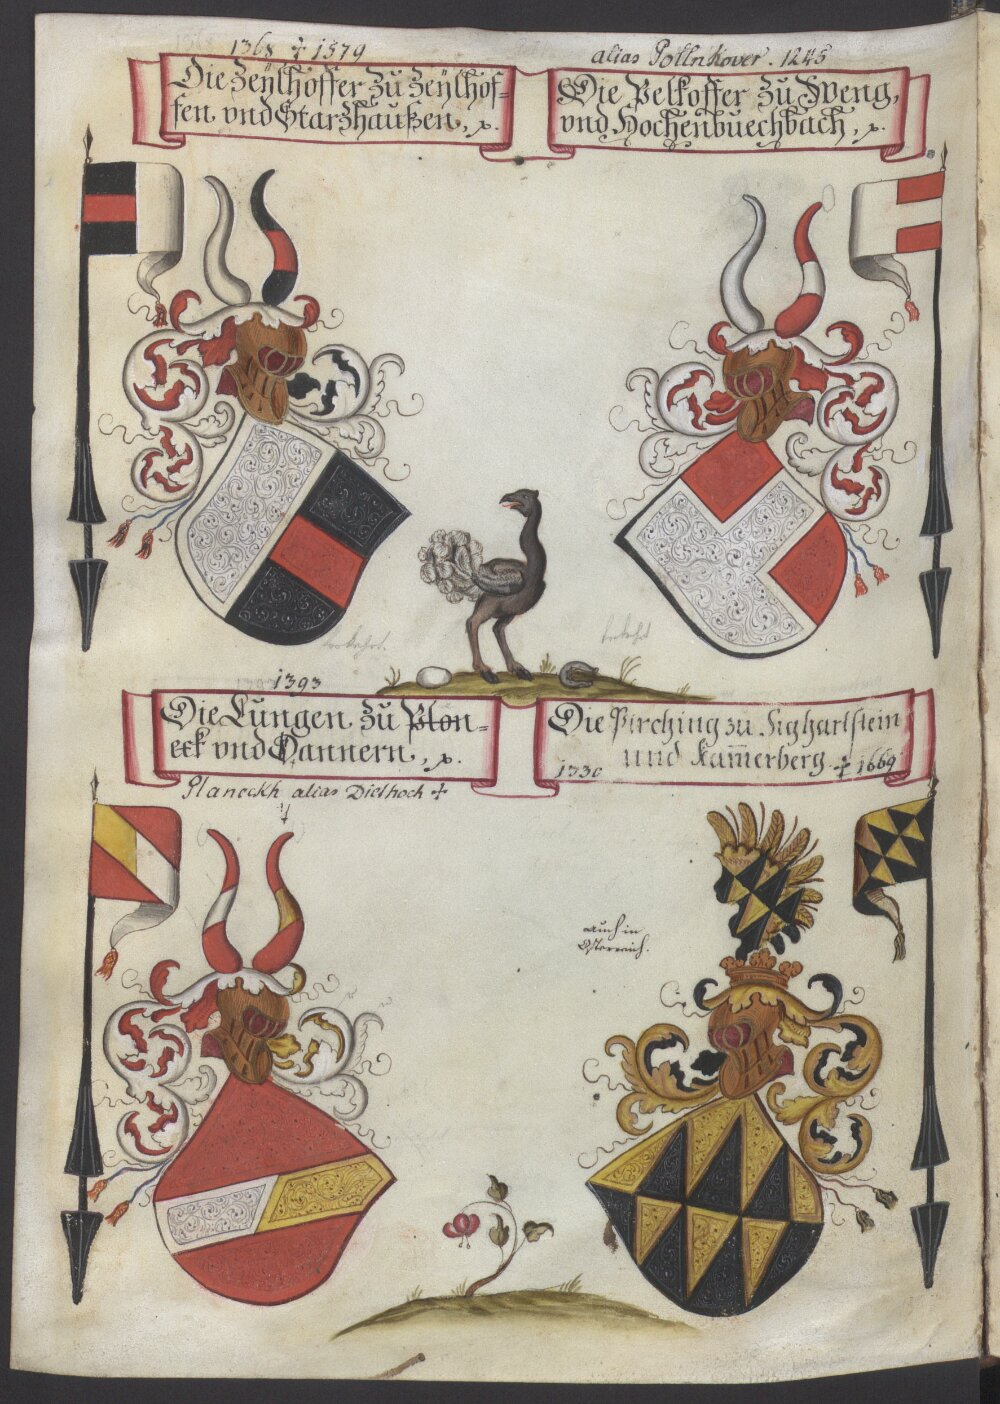 1368 † 1579
Die Zeÿlhoffer zu Zeÿlhof-
fen vnd Starzhaußen, x.
alias Pollnkover. 1245
Die Pelkoffer zu Weng,
vnd Hochenbuechbach, x.
verkehrt.
verkehrt
1393
Die Lungen zu Plon-
eck vnd Dannern, x.
Planeckh alias Diethoch †
Die Pirching zu Sigharlstein
und Kam̅erberg † 1669
1330
auch in
Österreich.